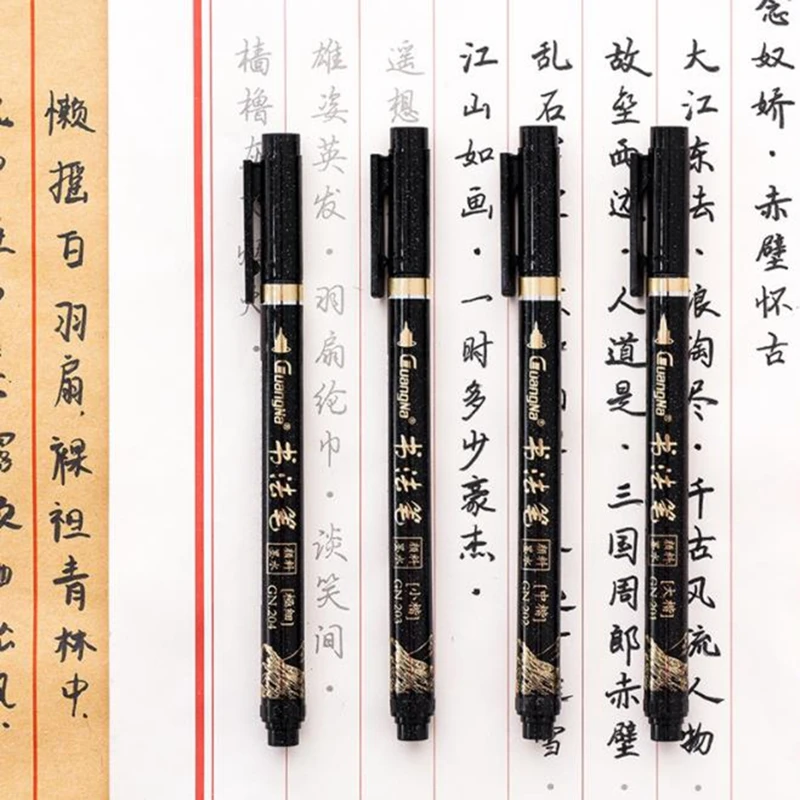 念奴娇·赤壁怀古
大江东去·浪淘尽·千古风流人物·
故垒西边·人道是·三国周郎赤壁·
乱石
雪·
江山如画·一时多少豪杰·
遥想
雄姿英发·羽扇纶巾·谈笑间·
樯橹
懒摇白羽扇，裸袒青林中.
GuangNa® 书法笔 颜料墨水 [極細] GN-204
GuangNa® 书法笔 颜料墨水 [小楷] GN-203
GuangNa® 书法笔 颜料墨水 [中楷] GN-202
GuangNa® 书法笔 颜料墨水 [大楷] GN-201